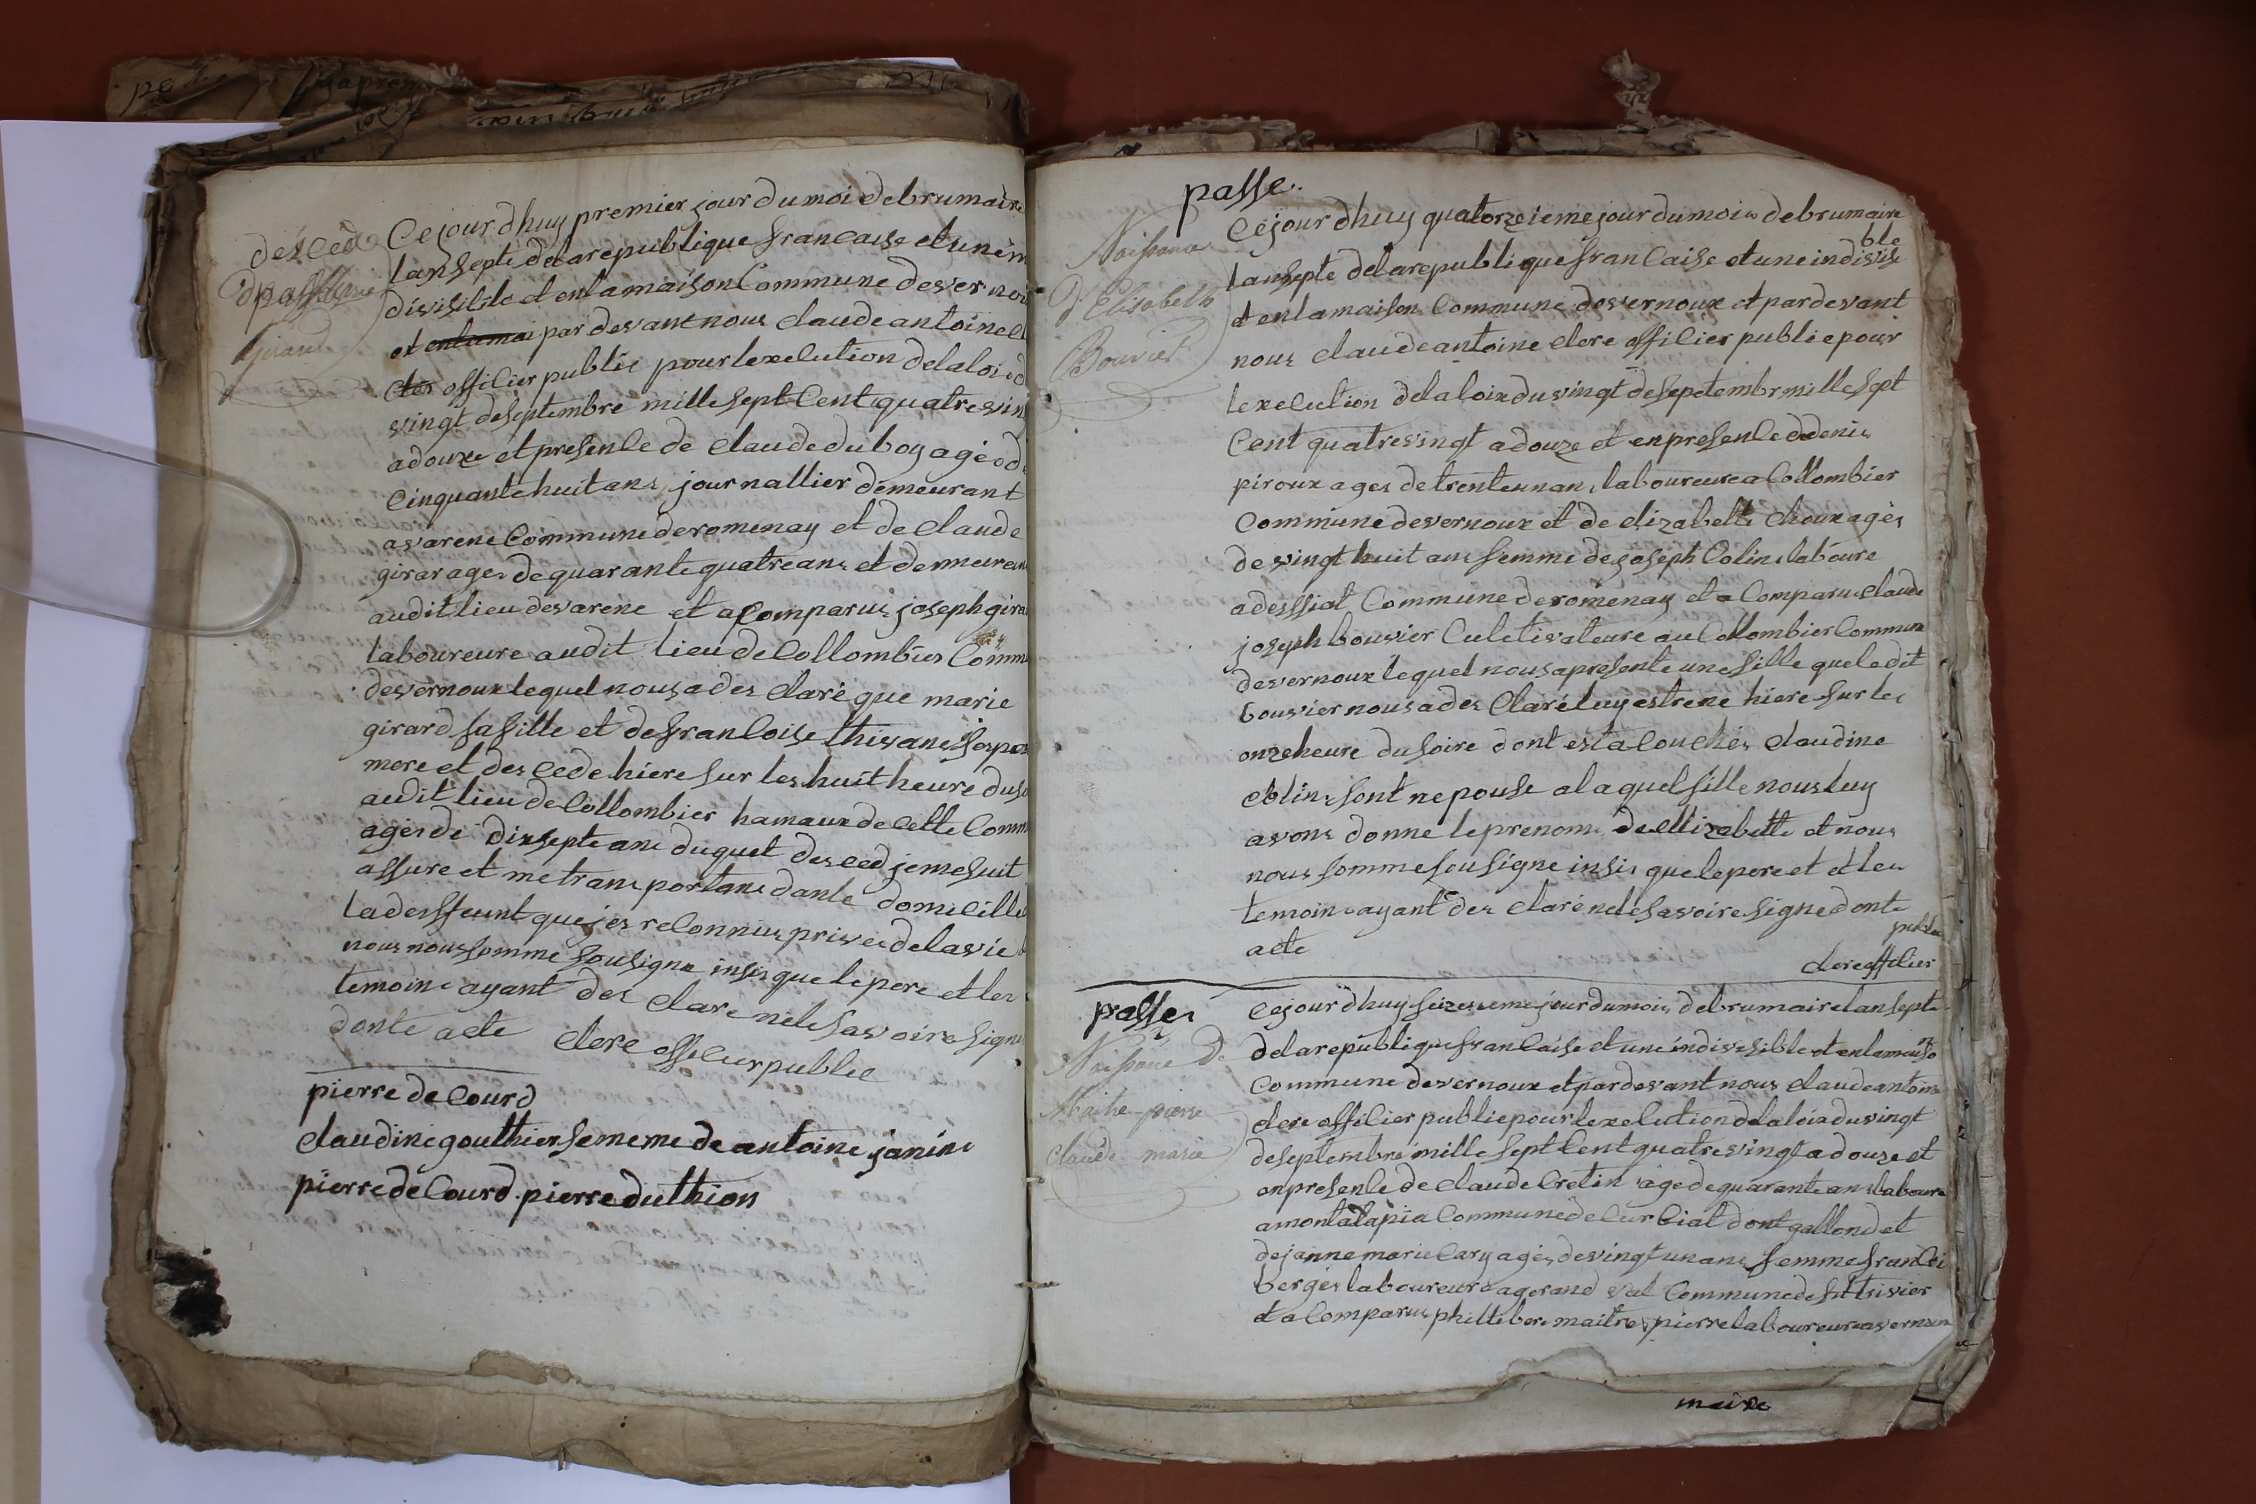 desced
passe
marie
girard
Cejour dhuy premier jour dumoi debrumaire
lan septe delarepublique francaise et une in
divisible et enlamaison Commune devernou
et enlamai pardevant nous claude antoine cl
cler officier public pour lexelution delaloi d
vingt deseptembre mille sept Cent quatrevin
adouze et presenle de claude duboy agé d
cinquante huit ans journallier demeurant
avarene Commune deromenay et de claude
girar ages de quarante quatre ans et demeuran
audit lieu devarene et acomparu joseph gira
laboureure audit lieu de Collombier Comm
devernoux lequel nous a des claré que marie
girard sa fille et defrancoise thivane
mere et des cede hiere sur les huit heure duso
audit lieu de Collombier hamaux de cette Comm
agès de dixsepte ans duquel desced jemesuit
assure et me trans portans dans le domicille
nous nous somme sousigne insis que le pere et les
temoins ayant des clare nele savoire signe
donte acte clere officier publec
pierre de Courd
claudine gouthier sememe de antoine janin
pierre de Courd pierre duthion
passe.
Naissance
d'Elisabeth
Bouvier
Cejour dhuy quatorzeieme jour dumois debrumaire
ble
lansepte delarepublique francaise et une indivisi
et enlamaison Commune devernoux et pardevant
nous claude antoine clere officier publie pour
lexelution delaloix duvingt desepetembr mille sept
Cent quatrevingt adouze et enpresenle dedenis
piroux ages detrenteunans laboureure a Collombier
Commune devernoux et de elizabette choux agès
de vingt huit ans femme dejoseph Colin laboure
adessiat Commune deromenay et a Comparu claude
joseph bouvier Culetivateure au Collombier Commune
devernoux lequel nous apresente une fille queledit
bouvier nous a des claré luy estrene hiere sur les
onzeheure dusoire dont est acouchés claudine
Colin sont nepouse alaquel fille nous luy
avons donne leprenom de ellizabette et nous
nous somme sousigne insis quelepere et et les
temoins ayant des clare nele savoire signe donte
acte
publec
clere officier
passe
Naissance de
Maitre-pierre
Claude marie
Cejour dhuy seizesieme jour dumois debrumaire lan sept
delarepublique francaise et une indivisible et enlamaiso
on
Commune devernoux et pardevant nous claude antoine
clere officier publie pour lexelution delaloix duvingt
deseptembre mille sept Cent quatrevingt adouze et
enpresenle de claude Cretin age dequarante ans laboure
amontalapia Commune de Curciat dontgallond et
dejanne marie Cary agès devingt un ans femme francoi
berges laboureure agrand val Commune de st trivier
et a Comparu phillibere maitre pierre laboureure avernoux
maire